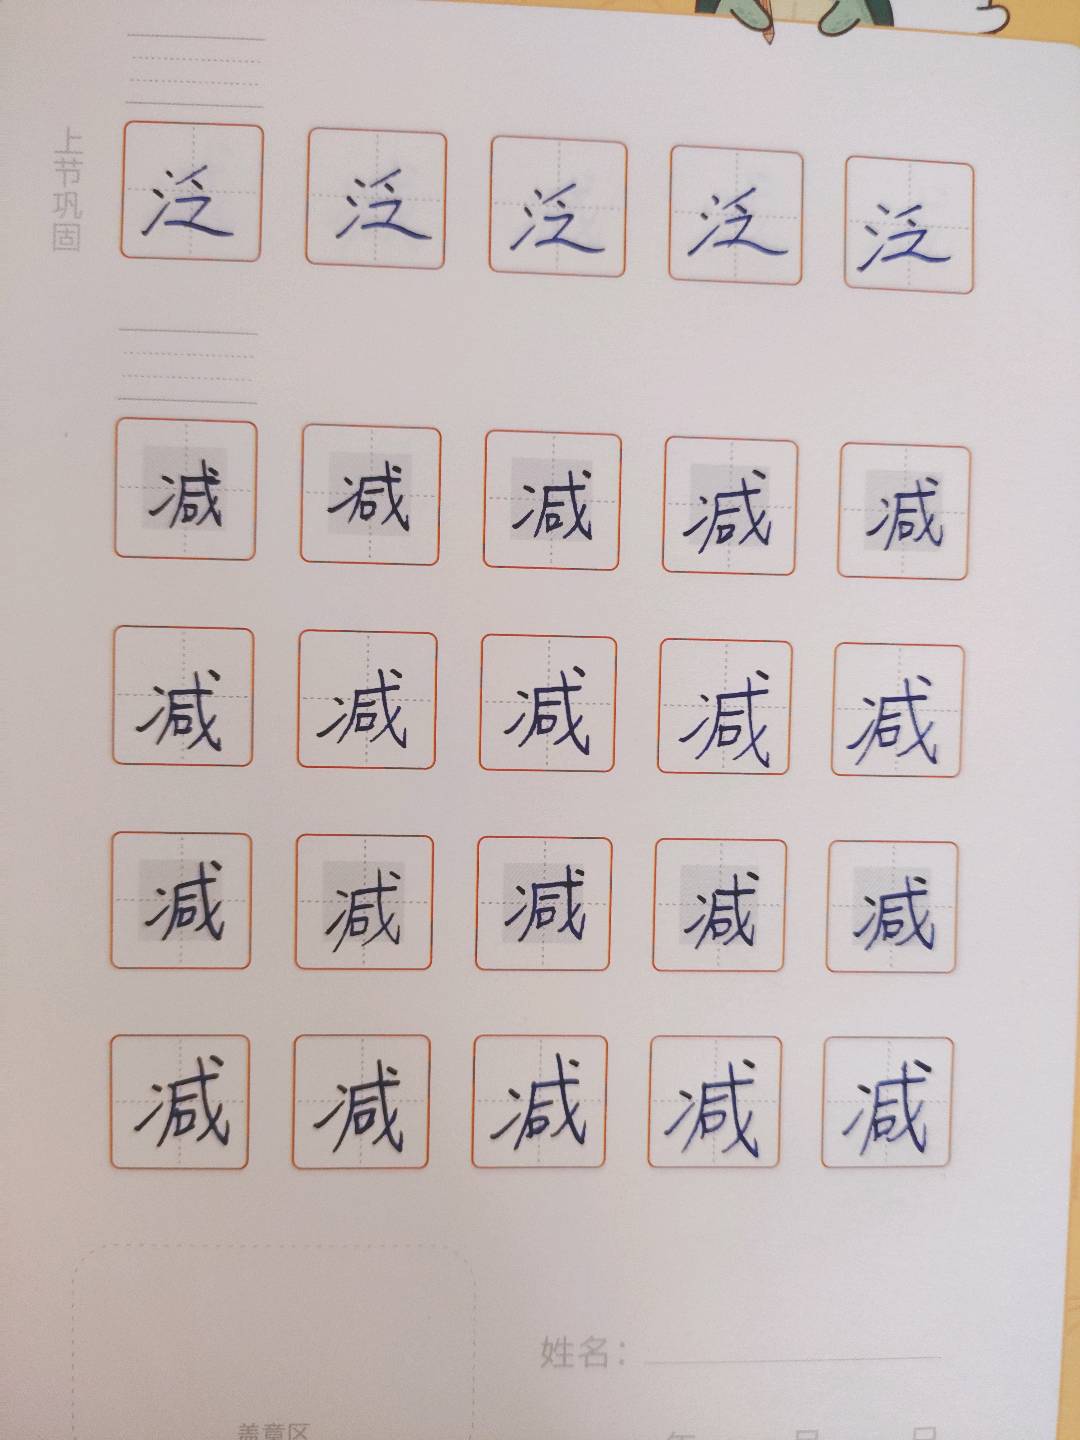 上节巩固
泛 泛 泛 泛 泛
减 减 减 减 减
减 减 减 减 减
减 减 减 减 减
减 减 减 减 减
姓名：
盖章区